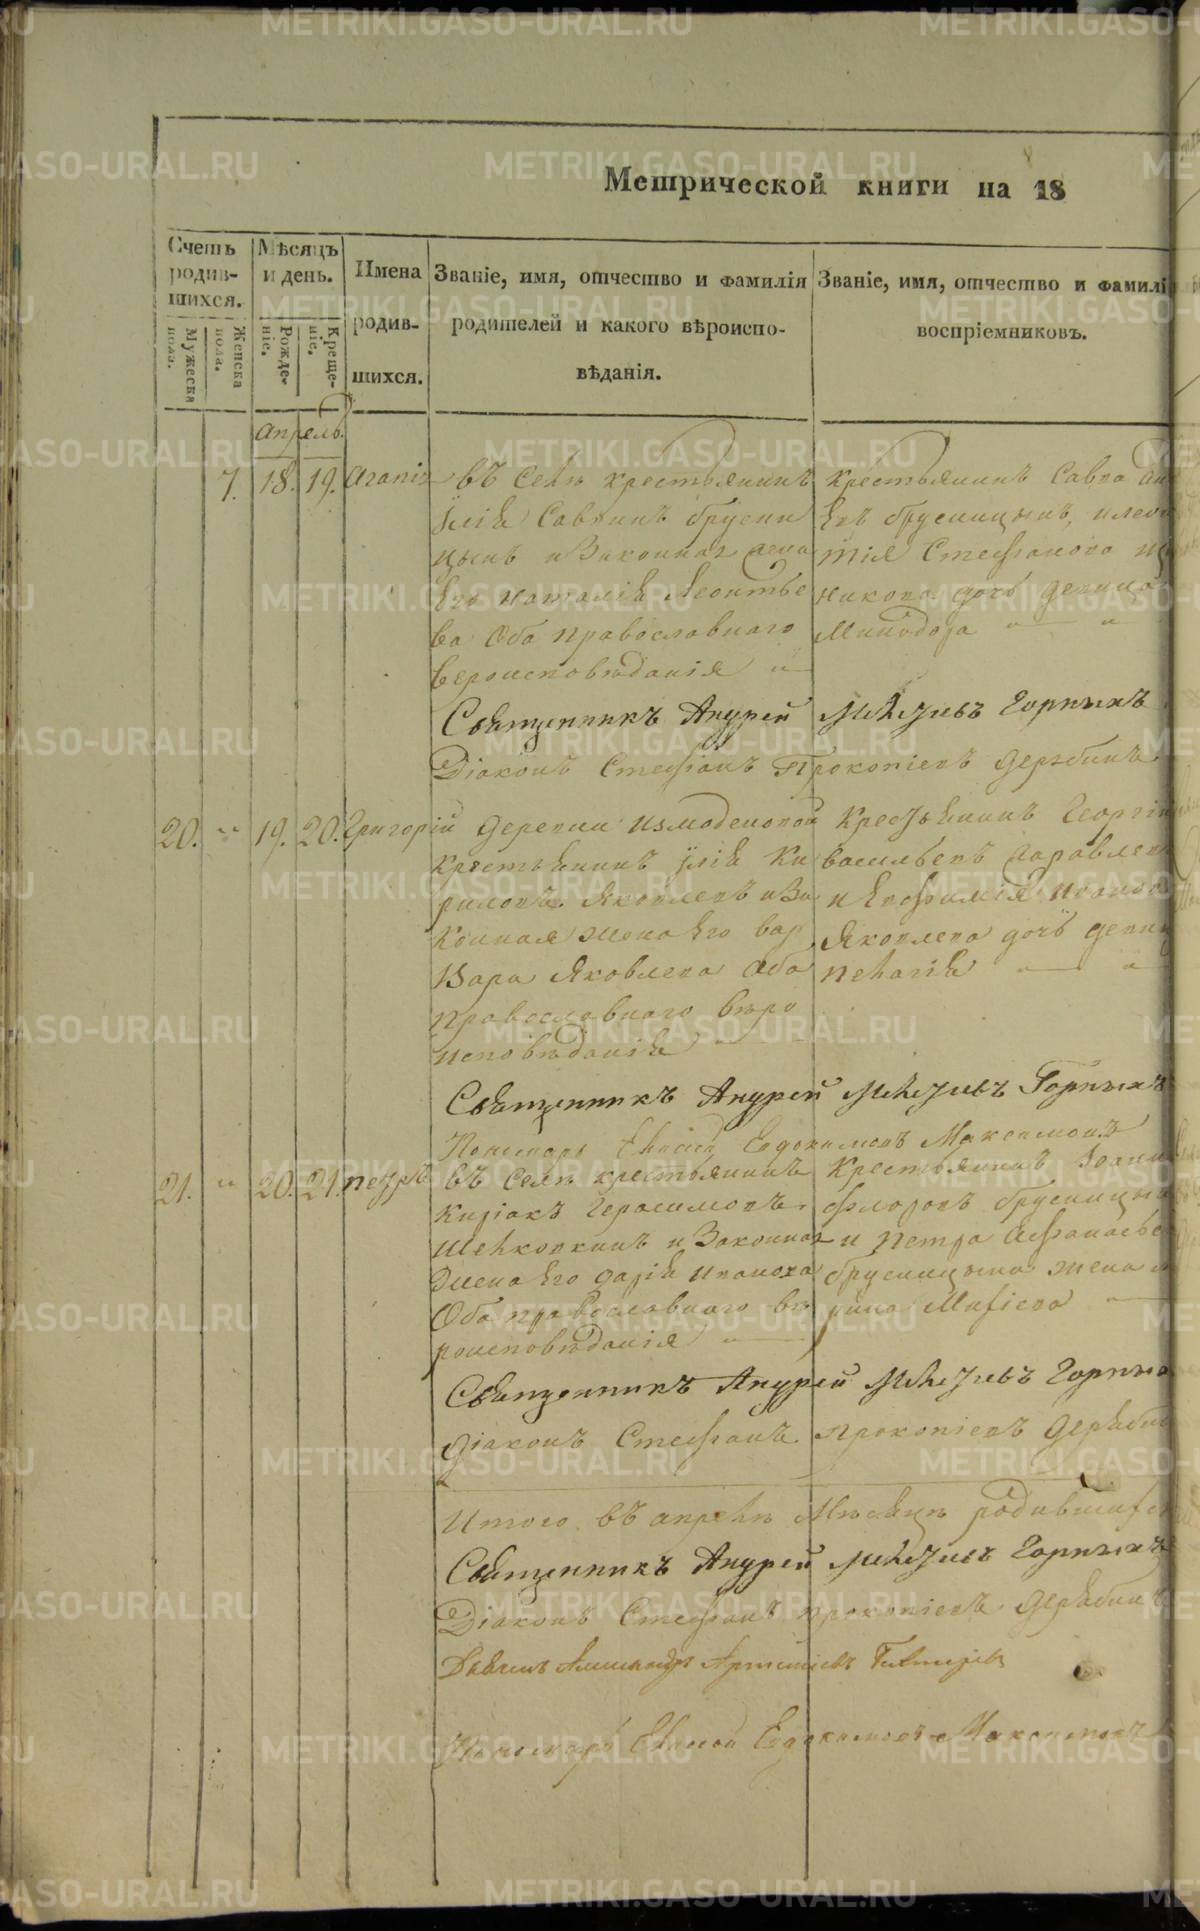 Метрической книги на 18
Счетъ родив- шихся.
Мужеска пола.
Женска пола.
Мѣсяцъ и день.
Рожде- ніе.
Креще- ніе.
Имена родив- шихся.
Званіе, имя, отчество и фамилія родителей и какого вѣроиспо- вѣданія.
Званіе, имя, отчество и фамилі воспріемниковъ.
Апрель.
7. 18. 19. Агапія
въ Селѣ крестьянинъ
Илія Саввинъ брусни
цынъ и Законная жена
Его Наталія Леонтье
ва Оба православнаго
вероисповѣданія
Крестьянинъ Савва
въ брусницынъ,
тія Стефанова
никова дочь девица
Минодора
Священникъ Андрей Алексѣевъ Горныхъ
Діаконъ Стефанъ Прокопіевъ Дерябинъ
20. " 19. 20. Григорій
деревни Измоденовой
крестьянинъ Илія Ки
риловъ Яковлевъ и За
конная жена Его вар
вара Яковлева Оба
православнаго вѣро
исповѣданія
Крестьянинъ Георгій
васильевъ
и Евфимія Иванова
Яковлева дочь девица
Пелагія
Священникъ Андрей Алексѣевъ Горныхъ
Пономарь Елисей Евдокимовъ Максимовъ
21. " 20. 21. петръ
въ Селѣ крестьянинъ
Киріакъ Герасимовъ
Шелковкинъ и Законная
жена Его Дарія Иванова
Оба православнаго вѣ
роисповѣданія
Крестьянинъ Іоанн
Флоровъ брусницын
и петра Афанасьева
брусницына жена
рина
Священникъ Андрей Алексѣевъ Горных
Діаконъ Стефанъ Прокопіевъ Деряби
Итого въ апрелѣ Мѣсяцѣ родившихся
Священникъ Андрей Алексѣевъ Горныхъ
Діаконъ Стефанъ Прокопіевъ Дерябинъ
Дьячекъ Александръ
Пономарь Елисей Евдокимовъ Максимовъ
METRIKI.GASO-URAL.RU